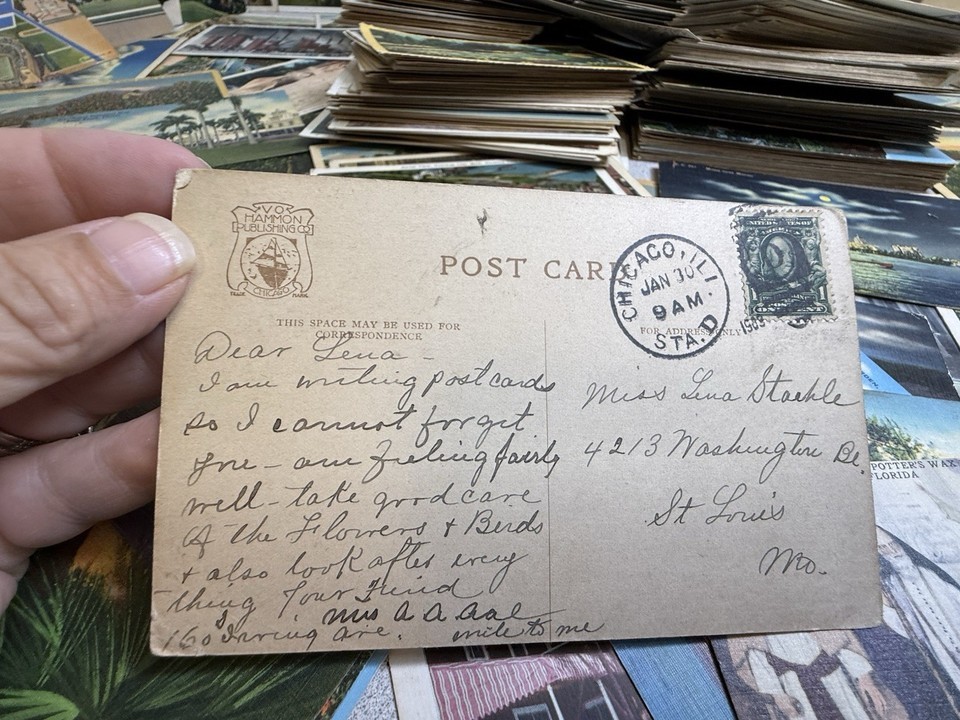 V.O.
HAMMON
PUBLISHING CO
TRADE CHICAGO MARK
POST CARD
CHICAGO, ILL
JAN 30
9 AM.
STA. D
1909
UNITED STATES OF
AMERICA
1
ONE CENT
THIS SPACE MAY BE USED FOR
CORRESPONDENCE
FOR ADDRESS ONLY
Dear Lena -
I am writing post cards
so I cannot forget
you - am feeling fairly
well - take good care
of the Flowers + Birds
+ also look after every
thing Your Friend
Mrs A A Aal
160 Irving ave. write to me
Miss Lena Staehle
4213 Washington Be.
St Louis
Mo.
POTTER'S WAX
FLORIDA